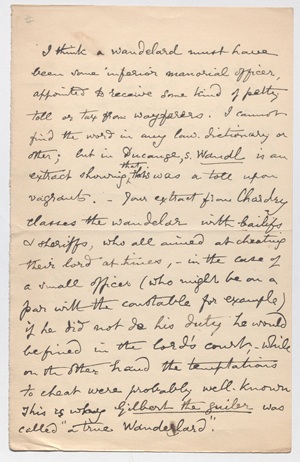 I think a wandelard must have
been some inferior manorial officer,
appointed to receive some kind of petty
toll or tax from wayfarers. I cannot
find the word in any law-dictionary or
other; but in Ducange, s. Wandl is an
extract showing that there was a toll upon
vagrants. – Your extract from Chardry
classes the wandelar with bailifs
& sheriffs, who all aimed at cheating
their lord at times, – in the case of
a small officer (who might be on a
par with the constable for example)
if he did not do his duty he would
be fined in the lord's court; while
on the other hand the temptations
to cheat were probably well-known
This is why Gilbert the guiler was
called "a true Wandelard".